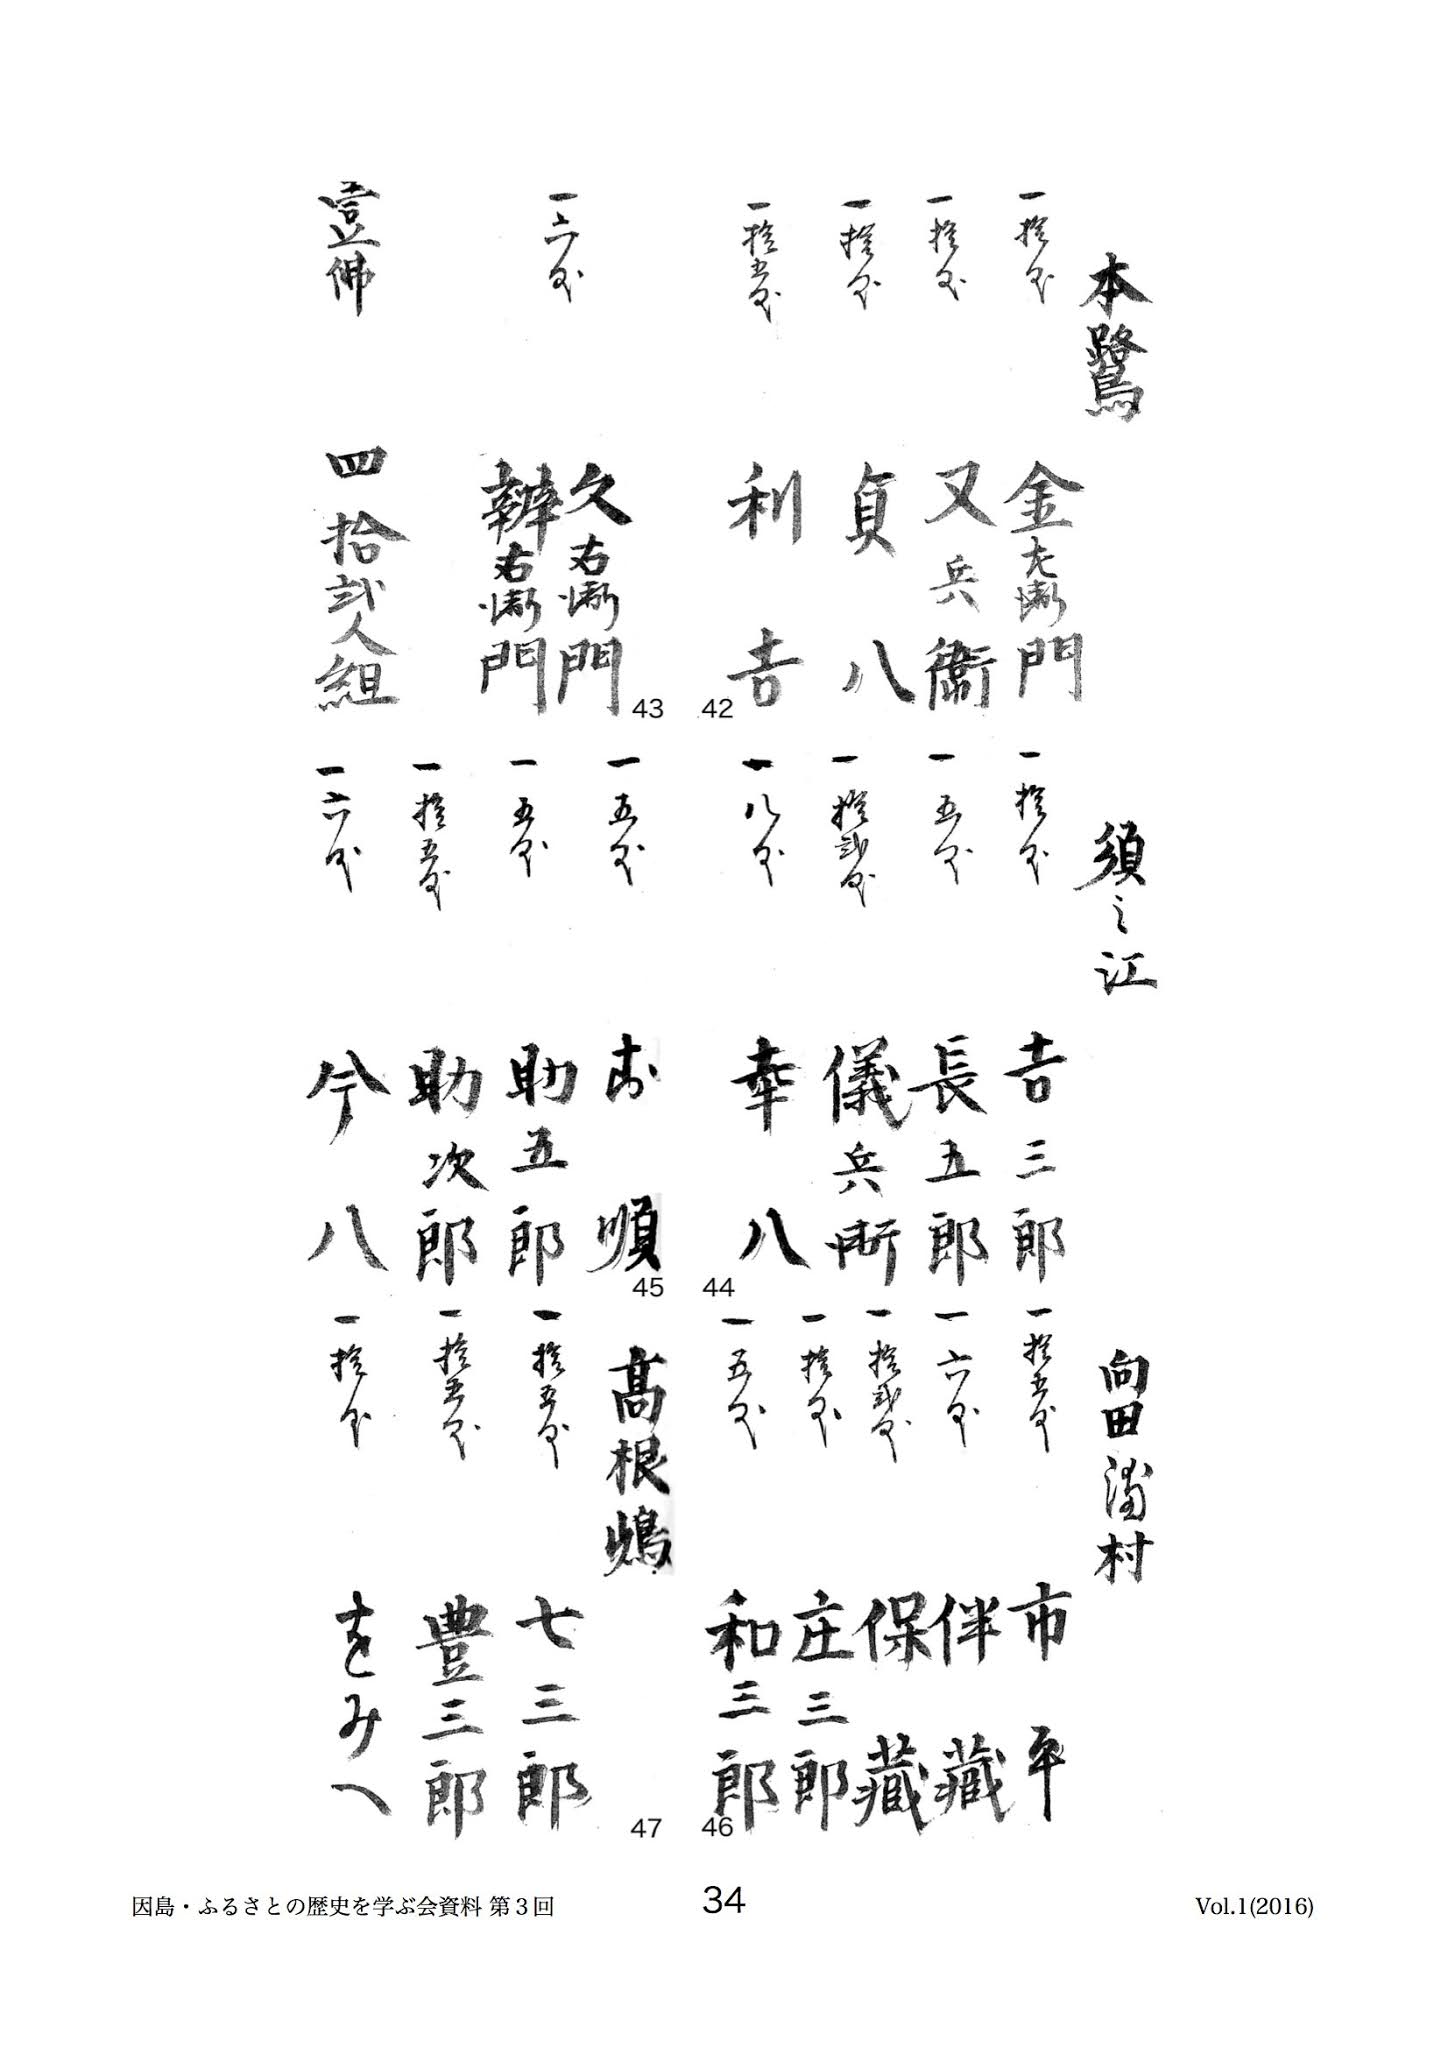 本鷺
一拾匁 金左衛門
一拾匁 又兵衛
一拾匁 貞八
一拾五匁 利吉
42
43
一六匁 久右衛門
辨右衛門
壹 四拾弐人組
須之江
一拾匁 吉三郎
一五匁 長五郎
一拾弐匁 儀兵衛
一八匁 幸八
44
45
一五匁 お順
一五匁 助五郎
一拾五匁 助次郎
一六匁 今八
向田浦村
一拾五匁 市平
一六匁 伴藏
一拾弐匁 保藏
一拾匁 庄三郎
一五匁 和三郎
46
47
髙根嶋
一拾五匁 七三郎
一拾五匁 豊三郎
一拾匁 をみへ
因島・ふるさとの歴史を学ぶ会資料 第３回
34
Vol.1(2016)